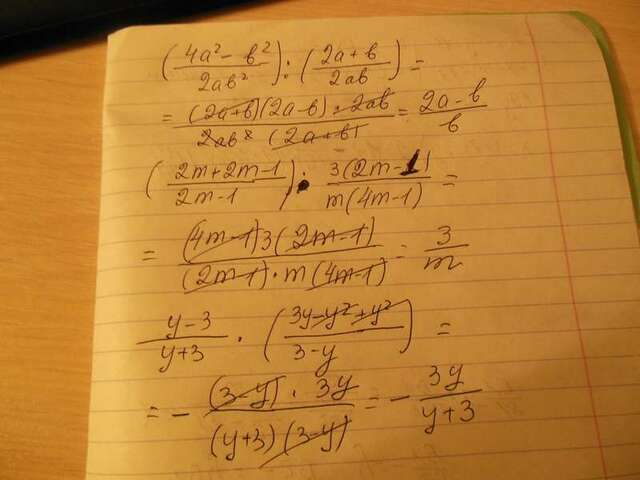 (4a² - b² / 2ab²) : (2a + b / 2ab) =
= (2a+b)(2a-b) · 2ab / 2ab² (2a+b) = 2a - b / b
(2m + 2m - 1 / 2m - 1) · 3(2m - 1) / m(4m - 1) =
= (4m-1) 3 (2m-1) / (2m-1) · m (4m-1) = 3 / m
y - 3 / y + 3 · (3y - y² + y² / 3 - y) =
= - (3-y) · 3y / (y+3) (3-y) = - 3y / y + 3